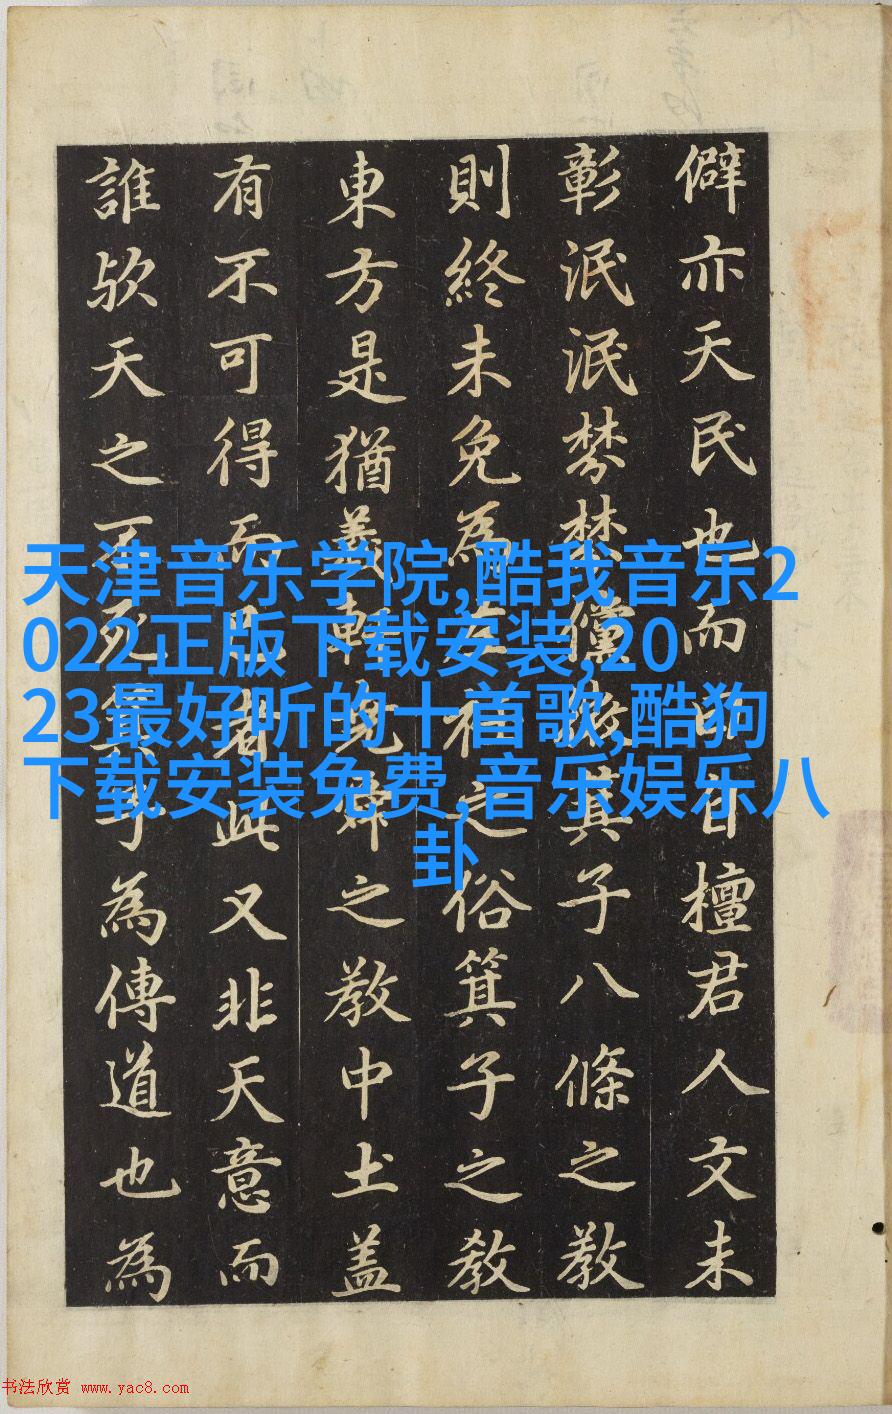 天津音乐学院,酷我音乐2
022正版下载安装,20
23最好听的十首歌,酷狗
下载安装免费,音乐娱乐八
卦
僻亦天民也而自檀君人文未
彰泯泯棼棼儻箕子八條之教
則終未免為左衽之俗箕子之教
東方是猶羲軒堯舜之教中土盖
有不可得而已者此又非天意而
誰欤天之不死箕子為傳道也為
书法欣赏 www.yac8.com